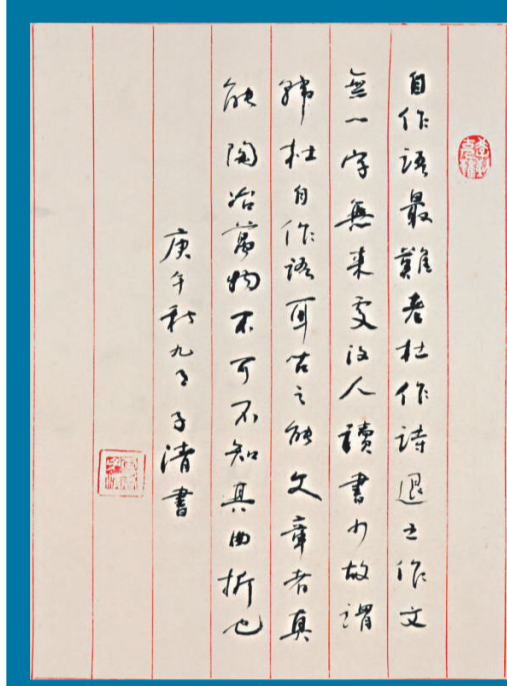 自作語最難老杜作詩退之作文
無一字無来處後人讀書少故謂
韓杜自作語耳古之能文章者真
能陶冶萬物不可不知其曲折也
庚午秋九月子清書